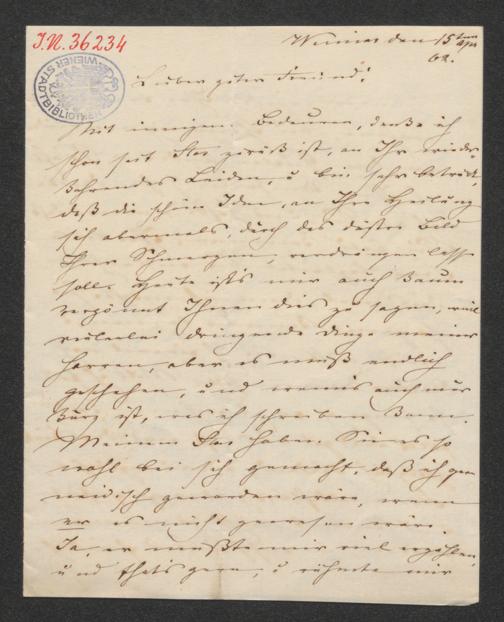 I.N. 36234
WIENER STADTBIBLIOTHEK
den 15ten Apr
62.
Lieber guter Freund!
Mit innigem Bedauern, denke ich
schon seit ist, an Ihr wieder-
kehrendes Leiden, u bin sehr betrübt,
daß die schöne Idee, an Ihre Heilung
sich abermals, durch das düstre Bild
Ihrer Schmerzen, verdrängen lassen
soll. Heute ist's mir auch kaum
vergönnt Ihnen dies zu sagen, weil
vielerlei dringende Dinge meiner
harren, aber es muß endlich
geschehen, und wenns auch nur
kurz ist, was ich schreiben kann.
Meinem haben Sie es so
wohl bei sich gemacht, daß ich ganz
neidisch geworden wäre, wenn
er es nicht gewesen wäre.
Ja, er mußte mir viel erzählen,
und thats gern, u rühmte mir